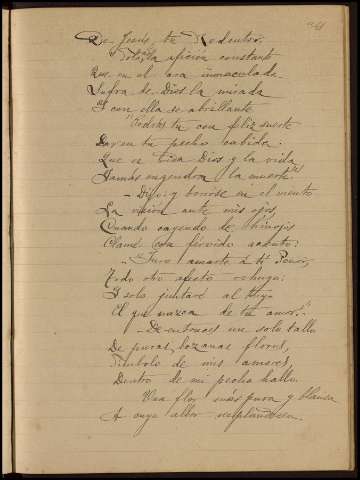 De Jesús, tu Redentor.
Toda la afición constante
Que en el ara inmaculada
Sufra de Dios la mirada
Y con ella se abrillante
"Podrás tú con feliz suerte
Dar en tu pecho cabida:
Que es vida Dios y la vida
Jamás engendra la muerte"
—Dijo: y borróse en el viento
La visión ante mis ojos,
Cuando cayendo de hinojos
Clamé con férvido acento:
—"Juro amarte a ti
Todo otro afecto
Y solo juntaré al tuyo
El que nazca de tu amor."
—De entonces un solo tallo
De puras, lozanas flores,
Símbolo de mis amores,
Dentro de mi pecho hallo.
Una flor más pura y blanca
A cuyo albor